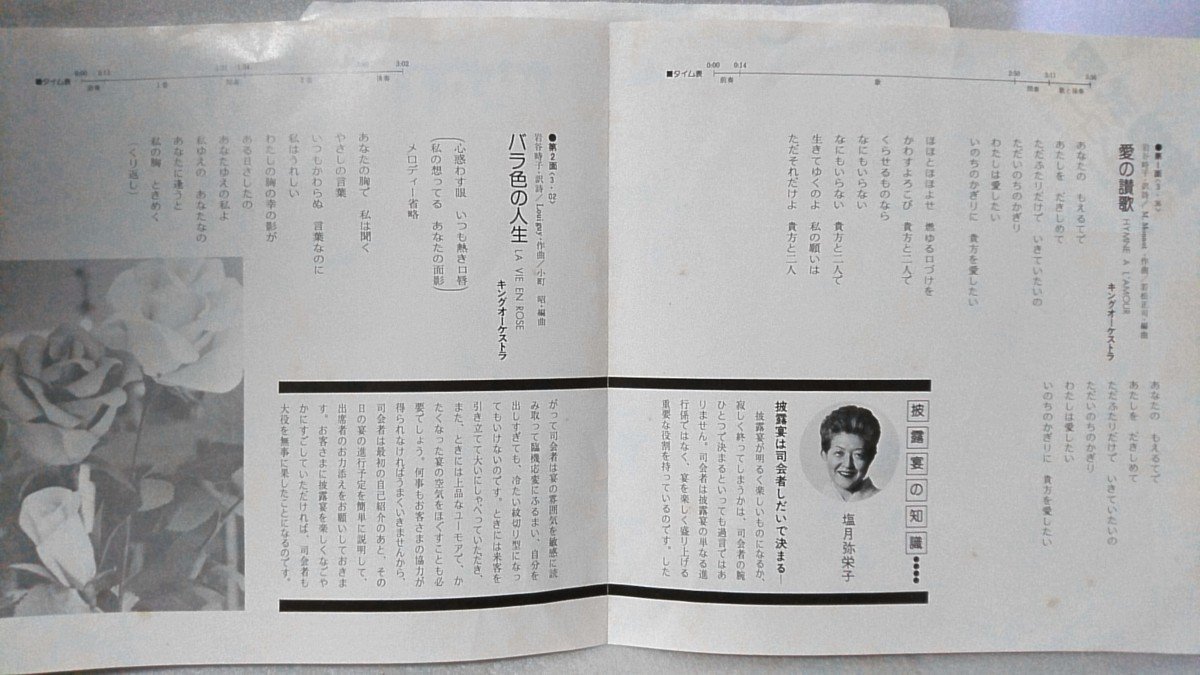 ■タイム表
0:00
0:14
2:50
3:11
3:36
前奏
歌
間奏
歌と後奏
●第1面〈3・36〉
愛の讃歌 HYMNE A L'AMOUR
岩谷時子・訳詩／M. Monnot・作曲／若松正司・編曲
キングオーケストラ
あなたの もえるてで
あたしを だきしめて
ただふたりだけで いきていたいの
ただいのちのかぎり
わたしは愛したい
いのちのかぎりに 貴方を愛したい
ほほとほほよせ 燃ゆる口づけを
かわすよろこび 貴方と二人で
くらせるものなら
なにもいらない
なにもいらない 貴方と二人で
生きてゆくのよ 私の願いは
ただそれだけよ 貴方と二人
あなたの もえるてで
あたしを だきしめて
ただふたりだけで いきていたいの
ただいのちのかぎり
わたしは愛したい
いのちのかぎりに 貴方を愛したい
■タイム表
0:00
0:13
3:02
前奏
間奏
後奏
●第2面〈3・02〉
岩谷時子・訳詩／Louiguy・作曲／小町 昭・編曲
バラ色の人生 LA VIE EN ROSE
キングオーケストラ
(心惑わす眼 いつも熱き口唇
私の想ってる あなたの面影)
メロディー省略
あなたの胸で 私は聞く
やさしの言葉
いつもかわらぬ 言葉なのに
私はうれしい
わたしの胸の幸の影が
ある日さしたの
あなたゆえの私よ
私ゆえの あなたなの
あなたに逢うと
私の胸 ときめく
(くり返し)
披露宴の知識●●●●
塩月弥栄子
披露宴は司会者しだいで決まる—
披露宴が明るく楽しいものになるか、
寂しく終ってしまうかは、司会者の腕
ひとつで決まるといっても過言ではあ
りません。司会者は披露宴の単なる進
行係ではなく、宴を楽しく盛り上げる
重要な役割を持っているのです。した
がって司会者は宴の雰囲気を敏感に読
み取って臨機応変にふるまい、自分を
出しすぎても、冷たい紋切り型になっ
てもいけないのです。ときには来客を
引き立てて大いにしゃべっていただき、
また、ときには上品なユーモアで、か
たくなった宴の空気をほぐすことも必
要でしょう。何事もお客さまの協力が
得られなければうまくいきませんから、
司会者は最初の自己紹介のあと、その
日の宴の進行予定を簡単に説明して、
出席者のお力添えをお願いしておきま
す。お客さまに披露宴を楽しくなごや
かにすごしていただければ、司会者も
大役を無事に果したことになるのです。